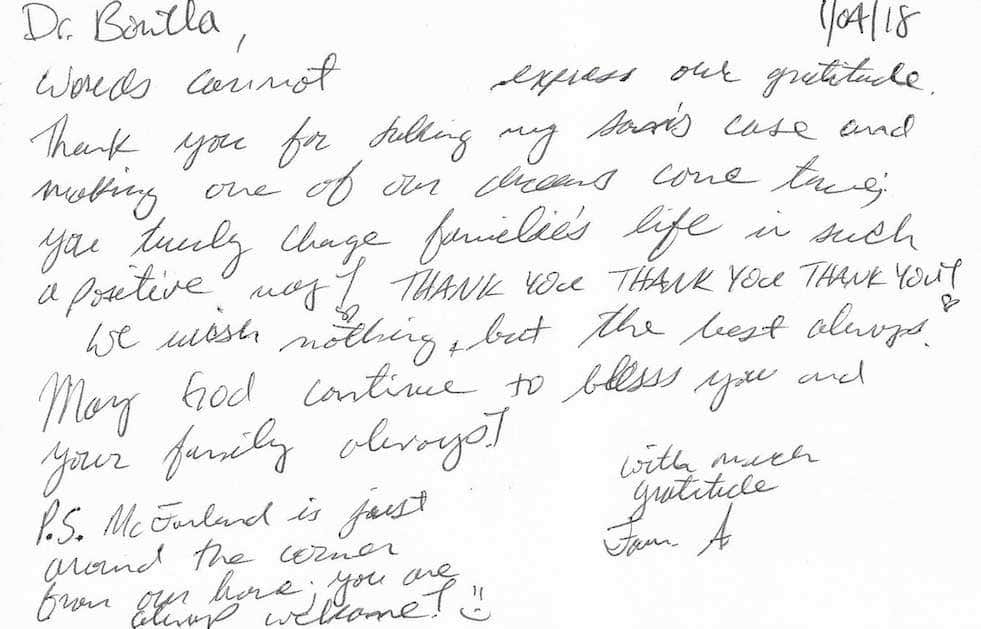 Dr. Bonilla, 1/04/18
Words cannot express our gratitude.
Thank you for taking my son's case and
making one of our dreams come true;
you truly change familie's life in such
a positive way! THANK YOU THANK YOU THANK YOU!
We wish nothing but the best always.
May God continue to blesss you and
your family always!
with much
gratitude
Fam. A
P.S. McFarland is just
around the corner
from our home; you are
always welcome! :)